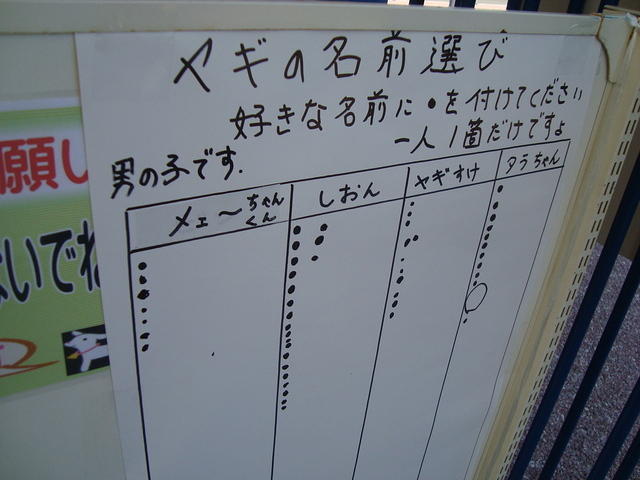 ヤギの名前選び
好きな名前に・を付けてください
一人1箇だけですよ
男の子です.
メェ〜ちゃんくん
しおん
ヤギすけ
タラちゃん
願い
ないでね